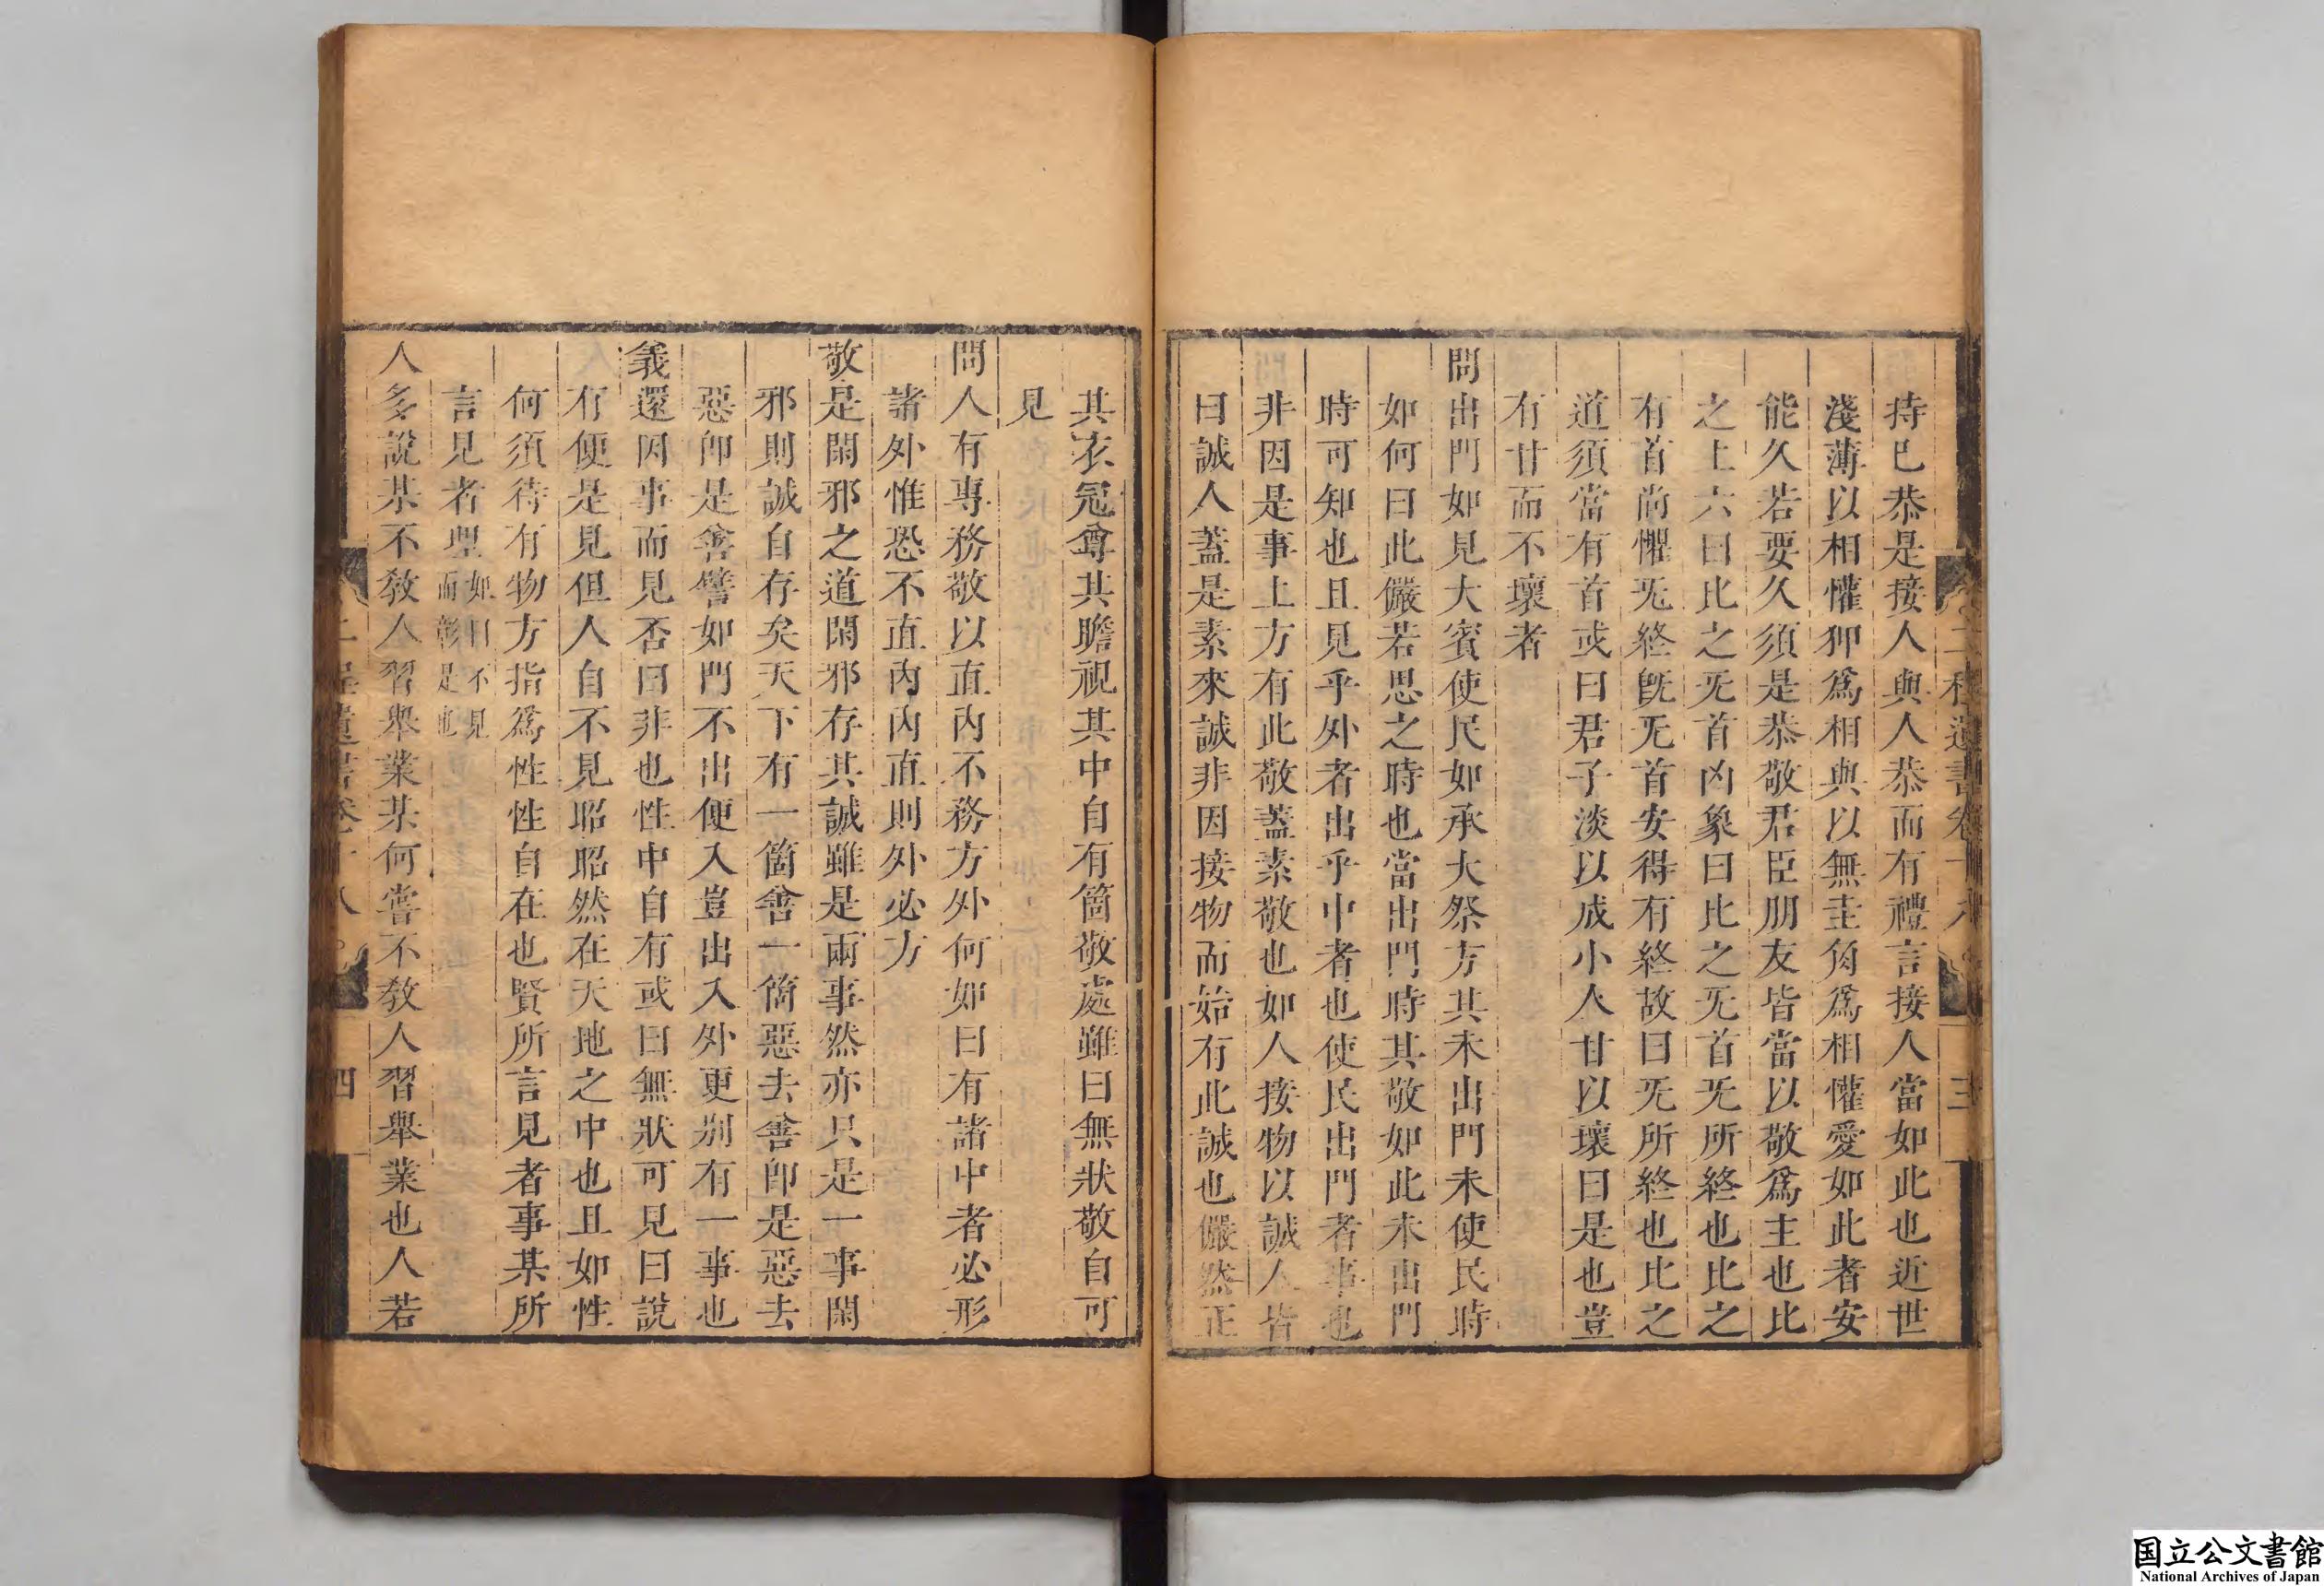 持已恭是接人與人恭而有禮言接人當如此也近世
淺薄以相懽狎爲相與以無圭角爲相懽愛如此者安
能久若要久須是恭敬君臣朋友皆當以敬爲主也比
之上六曰比之无首凶象曰比之无首无所終也比之
有首尚懼无終旣无首安得有終故曰无所終也比之
道須當有首或曰君子淡以成小人甘以壞曰是也豈
有甘而不壞者
問出門如見大賓使民如承大祭方其未出門未使民時
如何曰此儼若思之時也當出門時其敬如此未出門
時可知也且見乎外者出乎中者也使民出門者事也
非因是事上方有此敬蓋素敬也如人接物以誠人皆
曰誠人蓋是素來誠非因接物而始有此誠也儼然正
其衣冠尊其瞻視其中自有箇敬處雖曰無狀敬自可
見
問人有專務敬以直內不務方外何如曰有諸中者必形
諸外惟恐不直內內直則外必方
敬是閑邪之道閑邪存其誠雖是兩事然亦只是一事閑
邪則誠自存矣天下有一箇善一箇惡去善卽是惡去
惡卽是善譬如門不出便入豈出入外更別有一事也
義還因事而見否曰非也性中自有或曰無狀可見曰說
有便是見但人自不見昭昭然在天地之中也且如性
何須待有物方指爲性性自在也賢所言見者事某所
言見者理如曰不見而彰是也
人多說某不敎人習舉業某何嘗不敎人習舉業也人若
二程遺書卷十八
三
二程遺書卷十八
四
国立公文書館
National Archives of Japan